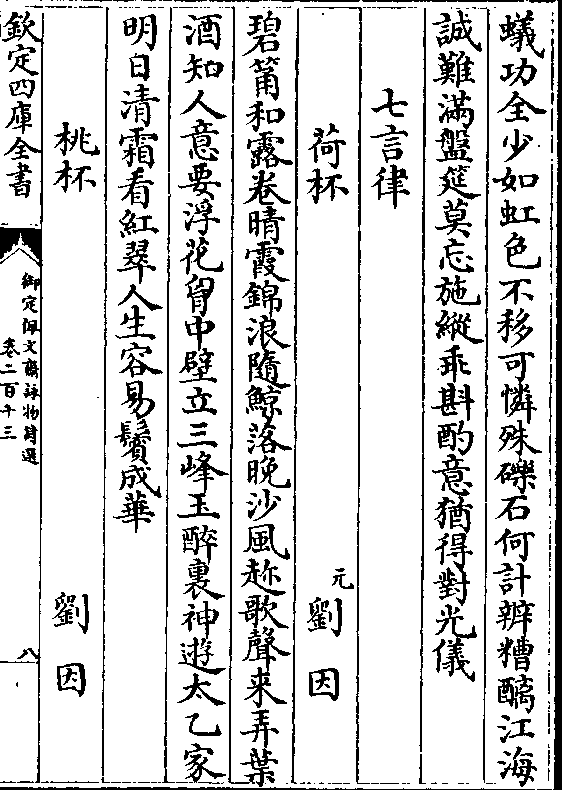 蟻功全少如虹色不移可憐殊礫石何計辨糟醨江海
誠難滿盤筵莫忘施縱乖斟酌意猶得對光儀
七言律
荷杯 元 劉因
碧筩和露卷晴霞錦浪隨鯨落晚沙風趂歌聲來弄葉
酒知人意要浮花胷中壁立三峰玉醉裏神遊太乙家
明日清霜看紅翠人生容易鬢成華
桃杯 劉因
欽定四庫全書
御定佩文齋詠物詩選
卷二百十三
八